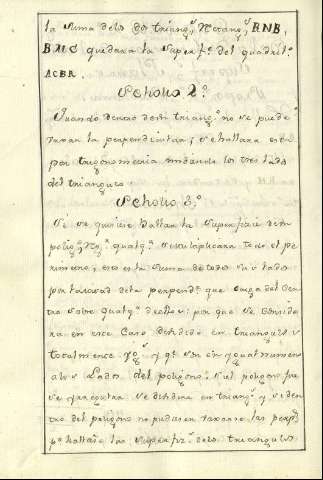 la suma delos dos triang.s Rectang.s RNB,
BMC quedara la superf.e del quadril.o
ACBR
Scholio 2.o
Quando dentro deste triang.o no se puede
tirar la perpendicular, se hallara esta
por trigonometria midiendo los tres lados
del triangulo
Scholio 3.o
Si se quisiere hallar la superficie deun
polig.o Reg.r qualq.a se multiplicara todo el pe
rimetro, esto es la suma de todos sus lados
por la mitad dela perpend.r que caiga del Cen
tro sobre qualq.a de ellos: por que se conside
ra en este caso dividido en triangulos
totalmente yg.s y q.e son en ygual numero
alos Lados del poligono. Si el poligono fue
se yrregular se dividira en triang.s y si den
tro del poligono no pudiesen tirarse las perp.s
p.a hallar las superfiz.s delos triangulos